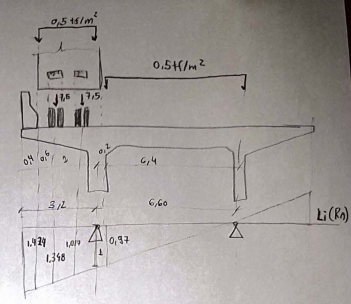 0,5tf/m²
0,5tf/m²
7,5 7,5
0,4 0,6 2 0,2 6,4
3,2 6,60
Li(Rn)
1,348 1 0,97